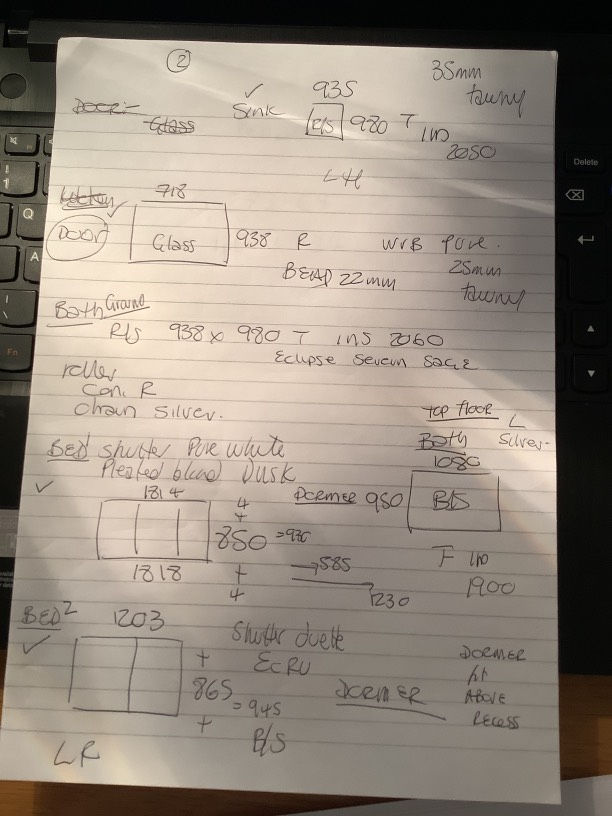 2
935
35mm
tawny
✓
Sink
R/S 980 T
ins
2050
Door:-
Glass
LH
718
✓
Door
Glass 938 R WVB Pure.
BEAD 22mm
25mm
tawny
Bath Ground
R/S 938 x 980 T ins 2060
Eclipse Severn Sage
roller
con. R
chain silver.
top floor L
Bath Silver.
1080
BED1 shutter Pure white
Pleated blind Dusk
✓
1814
4
+
850 = 930
+
4
1818
DORMER 980 B/S
→ 585
1230
F ins
1900
BED2 1203
✓
Shutter duette
ECRU
+
865
= 945
+
B/S
DORMER
DORMER
AT
ABOVE
RECESS
LR
Delete
Q
A
Fn